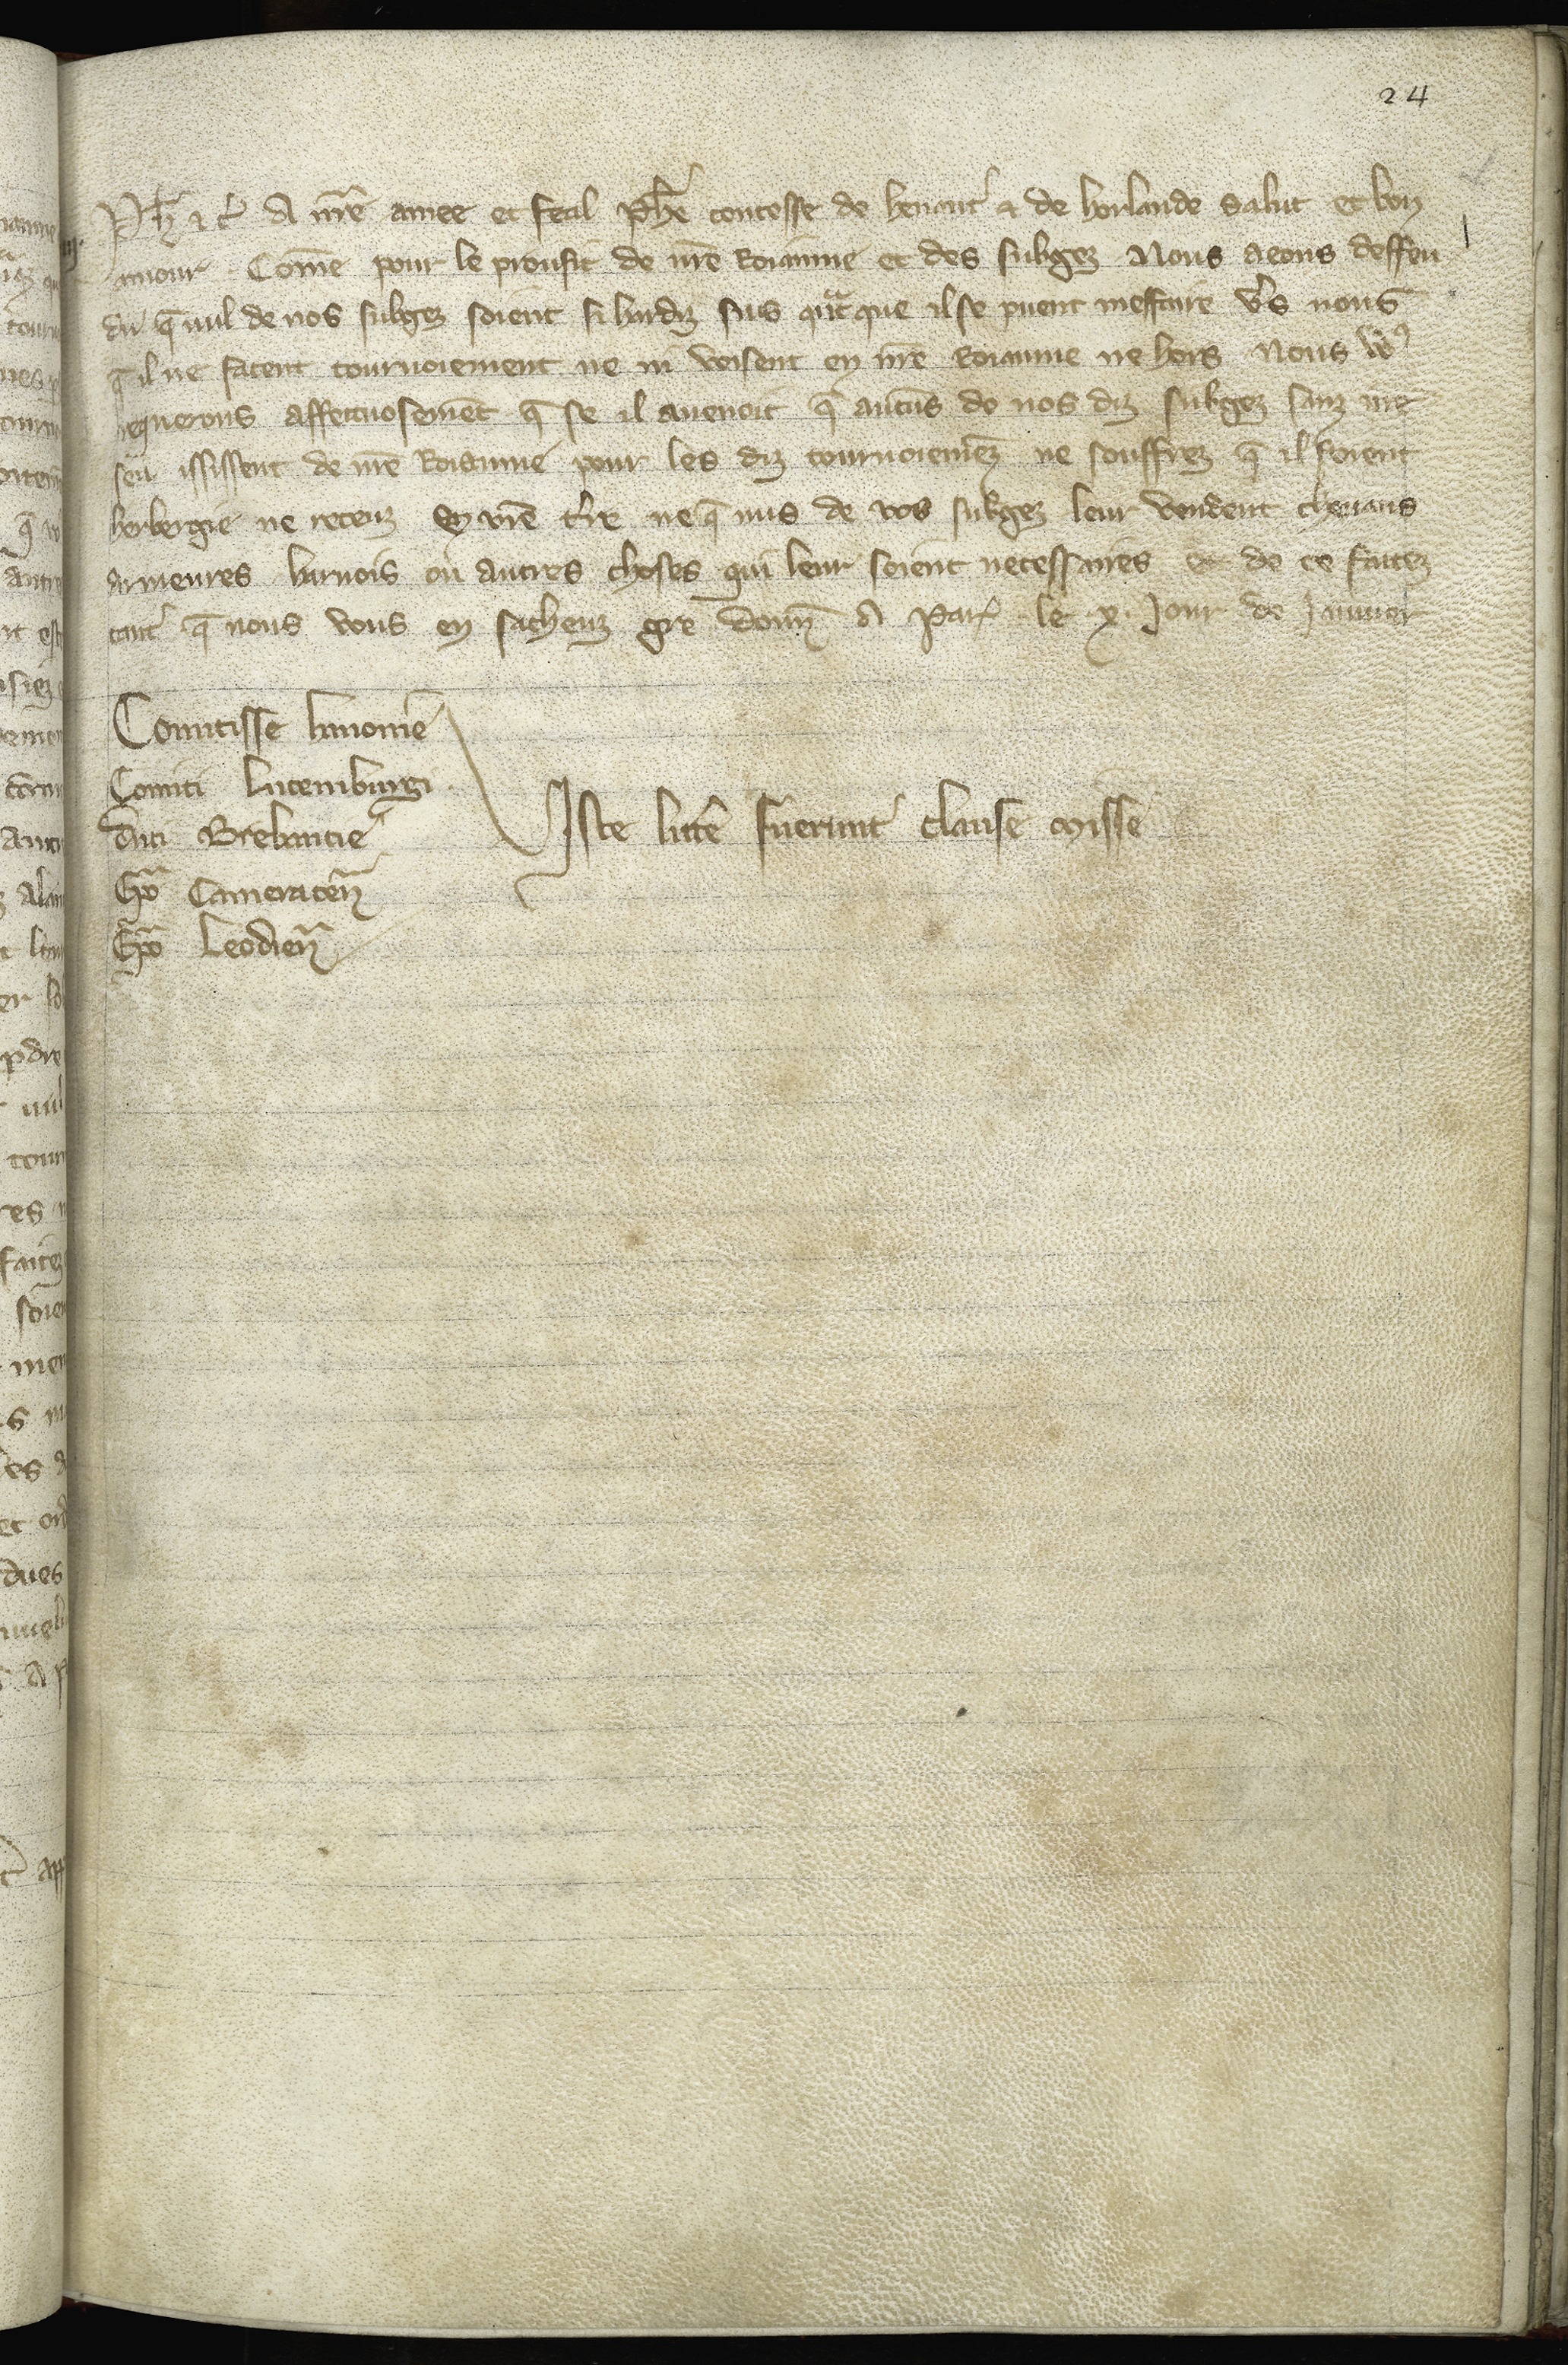 24
Ph̅ & c̅ A nr̅e amee et feal Ph̅e contesse de henaut & de horlande salut et bon
amour. Com̅e pour le proufit de nr̅e Roiaume et des subgez Nous aeons deffen
du q̅ nul de nos subgez soient si hardiz sus qᵃ̅tque il se puent meffaire v̓s nous
q̅ il ne facent tournoiement ne ni voisent en nr̅e Roiaume ne hors Nous voꝰ
requerons affectuosemēt q̅ se il auenoit q̅ aucūs de nos diz subgez sanz nr̅e
seu ississent de nr̅e Roiaume pour les diz tournoiemēz ne souffrez q̅ il soient
herbergie ne receuz en vr̅e t̓re ne q̅ nus de vos subgez leur vendent cheuaus
armeures harnois ou autres choses qui leur soient necessaires et de ce faitez
tant q̅ nous vous en sacheuz gre donn̅ A Par̅ le x. Jour de Januier
Comitisse hanonie̅
Comiti Lucemburgi
duci Brebantie
Ep̅o Cameracen̅
Ep̅o Leodien̅
Iste litt̅e fuerunt clause misse